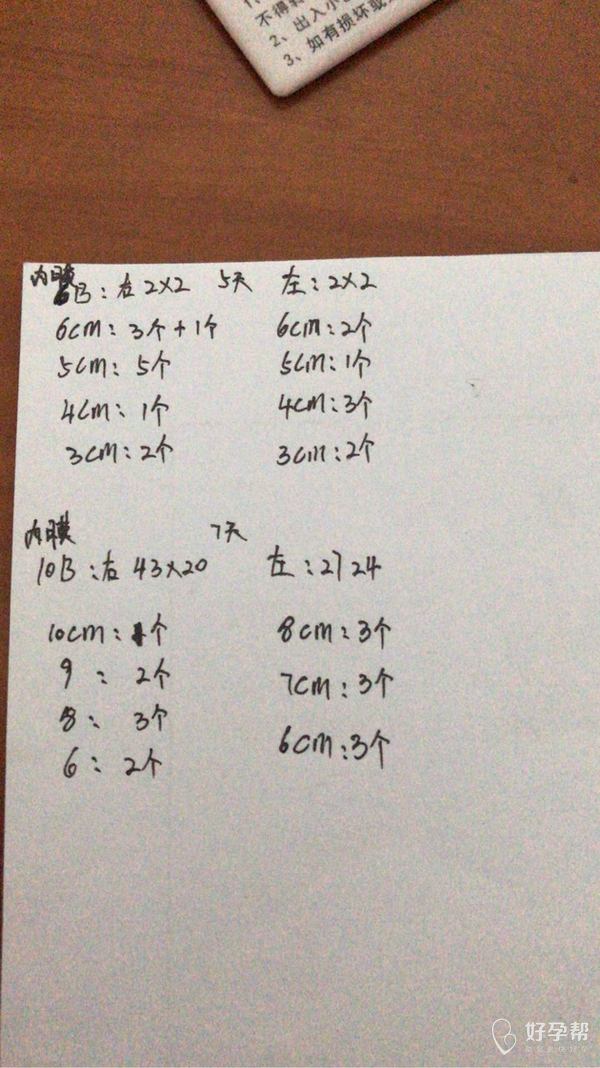 不得转
2、出入小
3、如有损坏或
内膜
6B：右 2×2 5天 左：2×2
6cm：3个+1个 6cm：2个
5cm：5个 5cm：1个
4cm：1个 4cm：3个
3cm：2个 3cm：2个
内膜 7天
10B：右 43×20 左：27 24
10cm：1个 8cm：3个
9：2个 7cm：3个
8：3个 6cm：3个
6：2个
好孕帮